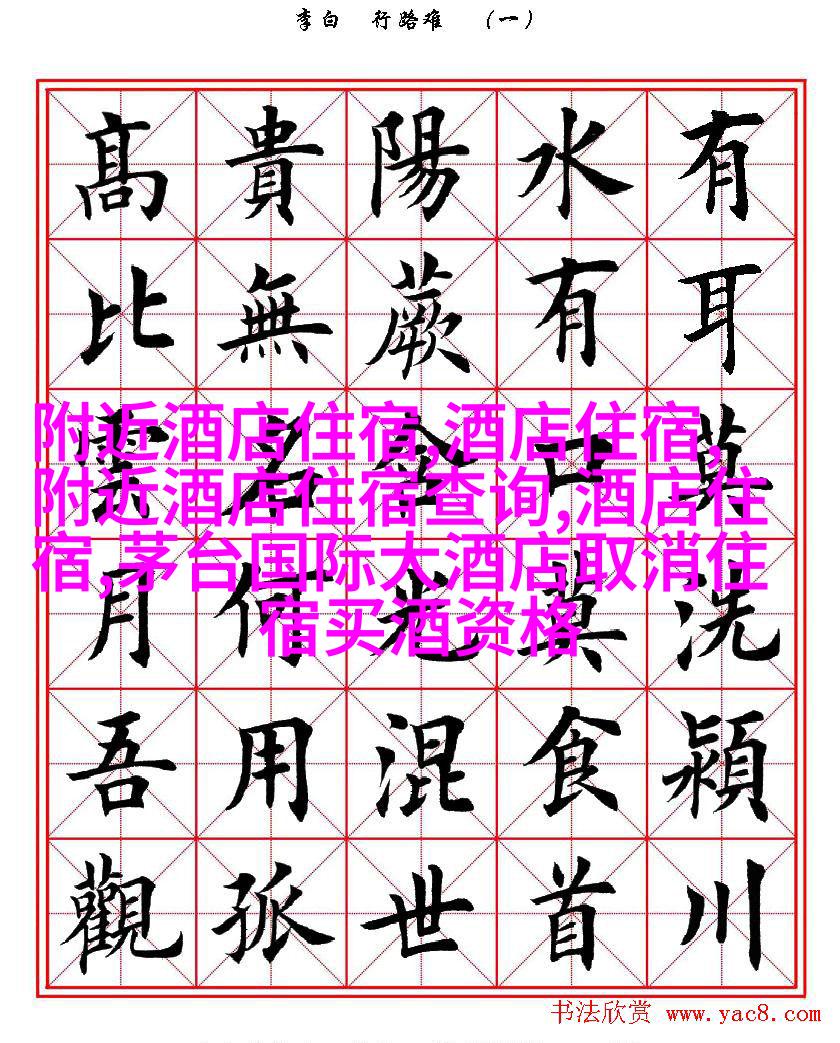 李白 行路难 （一）
有耳莫洗潁川
水有口莫食首
陽蕨含光混世
貴無名何用孤
髙比雲月吾觀
附近酒店住宿,酒店住宿,
附近酒店住宿查询,酒店住
宿,茅台国际大酒店取消住
宿买酒资格
书法欣赏 www.yac8.com